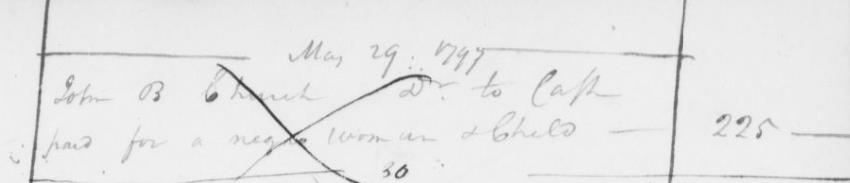 May 29: 1797
John B Church Dr. to Cash
paid for a negro woman & Child — 225 —
30